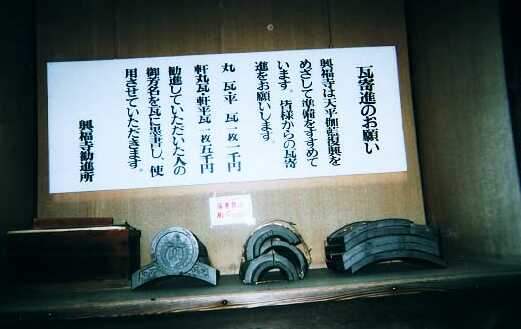 瓦寄進のお願い
興福寺は天平伽藍復興を
めざして準備をすすめて
います。皆様からの瓦寄
進をお願いします。
丸瓦平瓦一枚一千円
軒丸瓦軒平瓦一枚五千円
勧進していただいた人の
御芳名を瓦に墨書し、使
用させていただきます。
興福寺勧進所